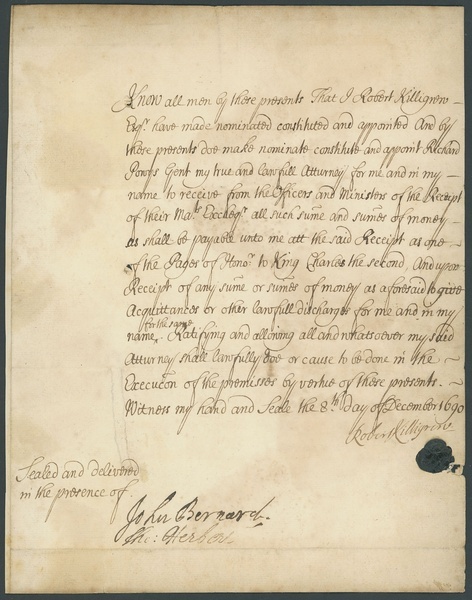 Know all men by these presents That I Robert Killigrew
Esqr. have made nominated constituted and appointed And by
these presents doe make nominate constitute and appoint Richard
Powys Gent my true and lawfull Atturney for me and in my
name to receive from the Officers and Ministers of the Receipt
of their Mats. Excheqr. all such sume and sumes of money
as shall be payable unto me att the said Receipt as one
of the Pages of Honor. to King Charles the second, And upon
Receipt of any sume or sumes of money as aforesaid to give
Acquittances or other lawfull discharges for me and in my
for the same
name. Ratifying and allowing all and whatsoever my said
Atturney shall lawfully doe or cause to be done in the
Execucon of the premisses by vertue of these presents.
Witness my hand and Seale the 8th. day of December 1690
Robert Killigrew
Sealed and delivered
in the presence of.
John Bernard.
Tho: Herbert